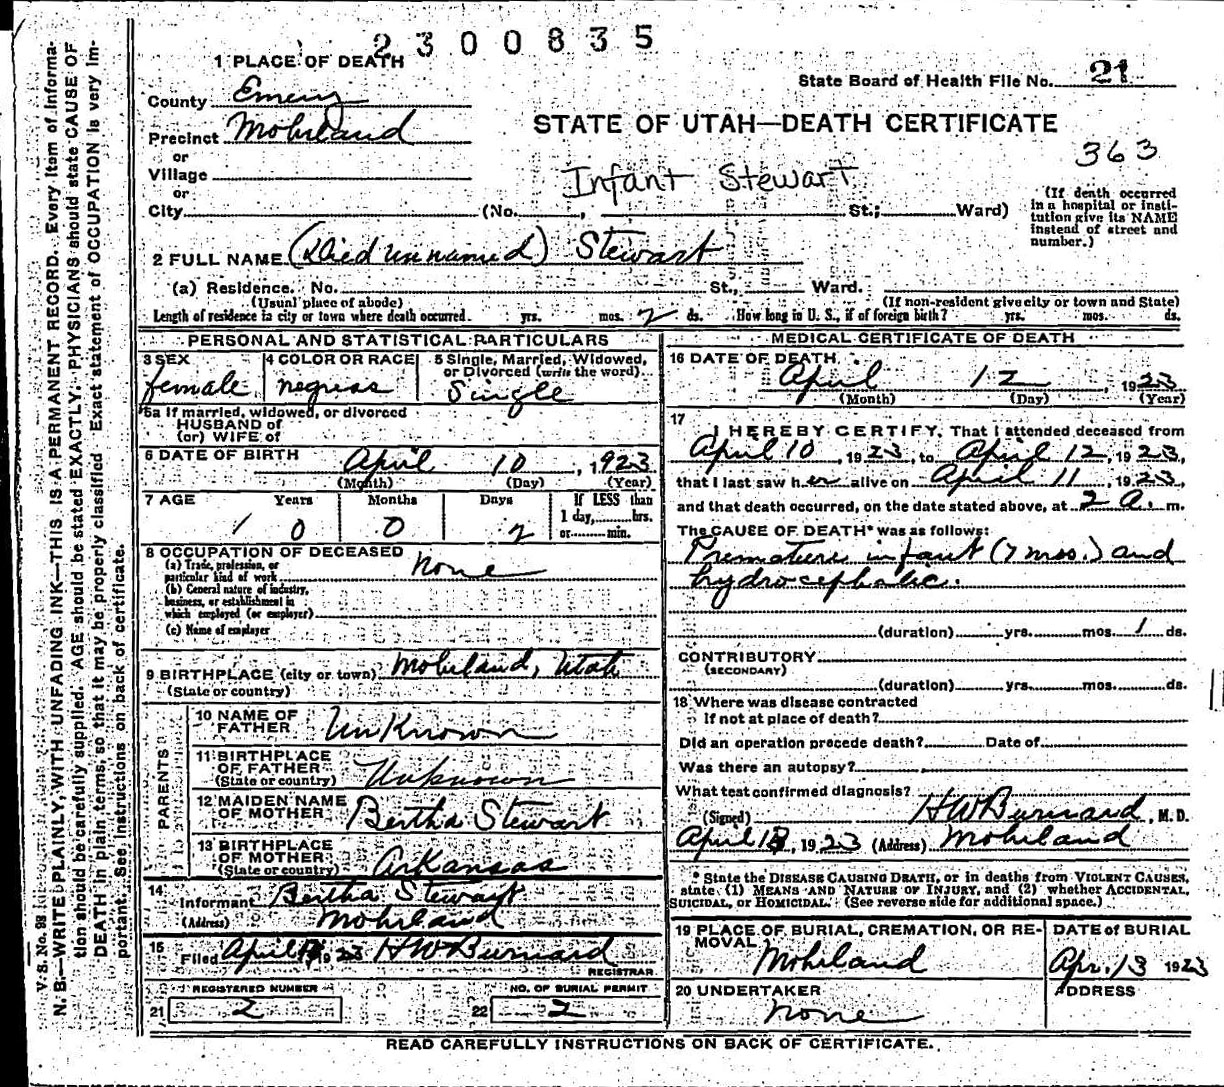 2300835
1 PLACE OF DEATH
State Board of Health File No. 21
County Emery
STATE OF UTAH—DEATH CERTIFICATE
Precinct Mohrland
363
or
Village
Infant Stewart
or
City (No. , St.; Ward)
(If death occurred in a hospital or institution give its NAME instead of street and number.)
2 FULL NAME (Died unnamed) Stewart
(a) Residence. No. St., Ward.
(Usual place of abode) (If non-resident give city or town and State)
Length of residence in city or town where death occurred yrs. mos. 2 ds. How long in U. S., if of foreign birth? yrs. mos. ds.
PERSONAL AND STATISTICAL PARTICULARS
3 SEX
female
4 COLOR OR RACE
negress
5 Single, Married, Widowed, or Divorced (write the word)
Single
5a If married, widowed, or divorced
HUSBAND of
(or) WIFE of
6 DATE OF BIRTH April 10, 1923
(Month) (Day) (Year)
7 AGE Years Months Days If LESS than
1 day, hrs.
or min.
0 0 2
8 OCCUPATION OF DECEASED
(a) Trade, profession, or particular kind of work None
(b) General nature of industry, business, or establishment in which employed (or employer)
(c) Name of employer
9 BIRTHPLACE (city or town) Mohrland, Utah
(State or country)
PARENTS
10 NAME OF FATHER Unknown
11 BIRTHPLACE OF FATHER (State or country) Unknown
12 MAIDEN NAME OF MOTHER Bertha Stewart
13 BIRTHPLACE OF MOTHER (State or country) Arkansas
14
Informant Bertha Stewart
(Address) Mohrland
15
Filed April 1923 HW Burnard
REGISTRAR
REGISTERED NUMBER
21 2
NO. OF BURIAL PERMIT
22 2
MEDICAL CERTIFICATE OF DEATH
16 DATE OF DEATH
April 12, 1923
(Month) (Day) (Year)
17
I HEREBY CERTIFY, That I attended deceased from
April 10, 1923, to April 12, 1923,
that I last saw her alive on April 11, 1923,
and that death occurred, on the date stated above, at 2 a. m.
The CAUSE OF DEATH* was as follows:
Premature infant (7 mos.) and
hydrocephalic.
(duration) yrs. mos. 1 ds.
CONTRIBUTORY
(SECONDARY)
(duration) yrs. mos. ds.
18 Where was disease contracted
If not at place of death?
Did an operation precede death? Date of
Was there an autopsy?
What test confirmed diagnosis?
(Signed) HW Burnard, M. D.
April, 1923 (Address) Mohrland
* State the DISEASE CAUSING DEATH, or in deaths from VIOLENT CAUSES,
state (1) MEANS AND NATURE OF INJURY, and (2) whether ACCIDENTAL,
SUICIDAL, or HOMICIDAL. (See reverse side for additional space.)
19 PLACE OF BURIAL, CREMATION, OR REMOVAL
Mohrland
DATE of BURIAL
Apr. 13 1923
20 UNDERTAKER
none
ADDRESS
READ CAREFULLY INSTRUCTIONS ON BACK OF CERTIFICATE.
N. B.—WRITE PLAINLY, WITH UNFADING INK—THIS IS A PERMANENT RECORD. Every item of Information should be carefully supplied. AGE should be stated EXACTLY. PHYSICIANS should state CAUSE OF DEATH in plain terms, so that it may be properly classified. Exact statement of OCCUPATION is very important. See instructions on back of certificate.